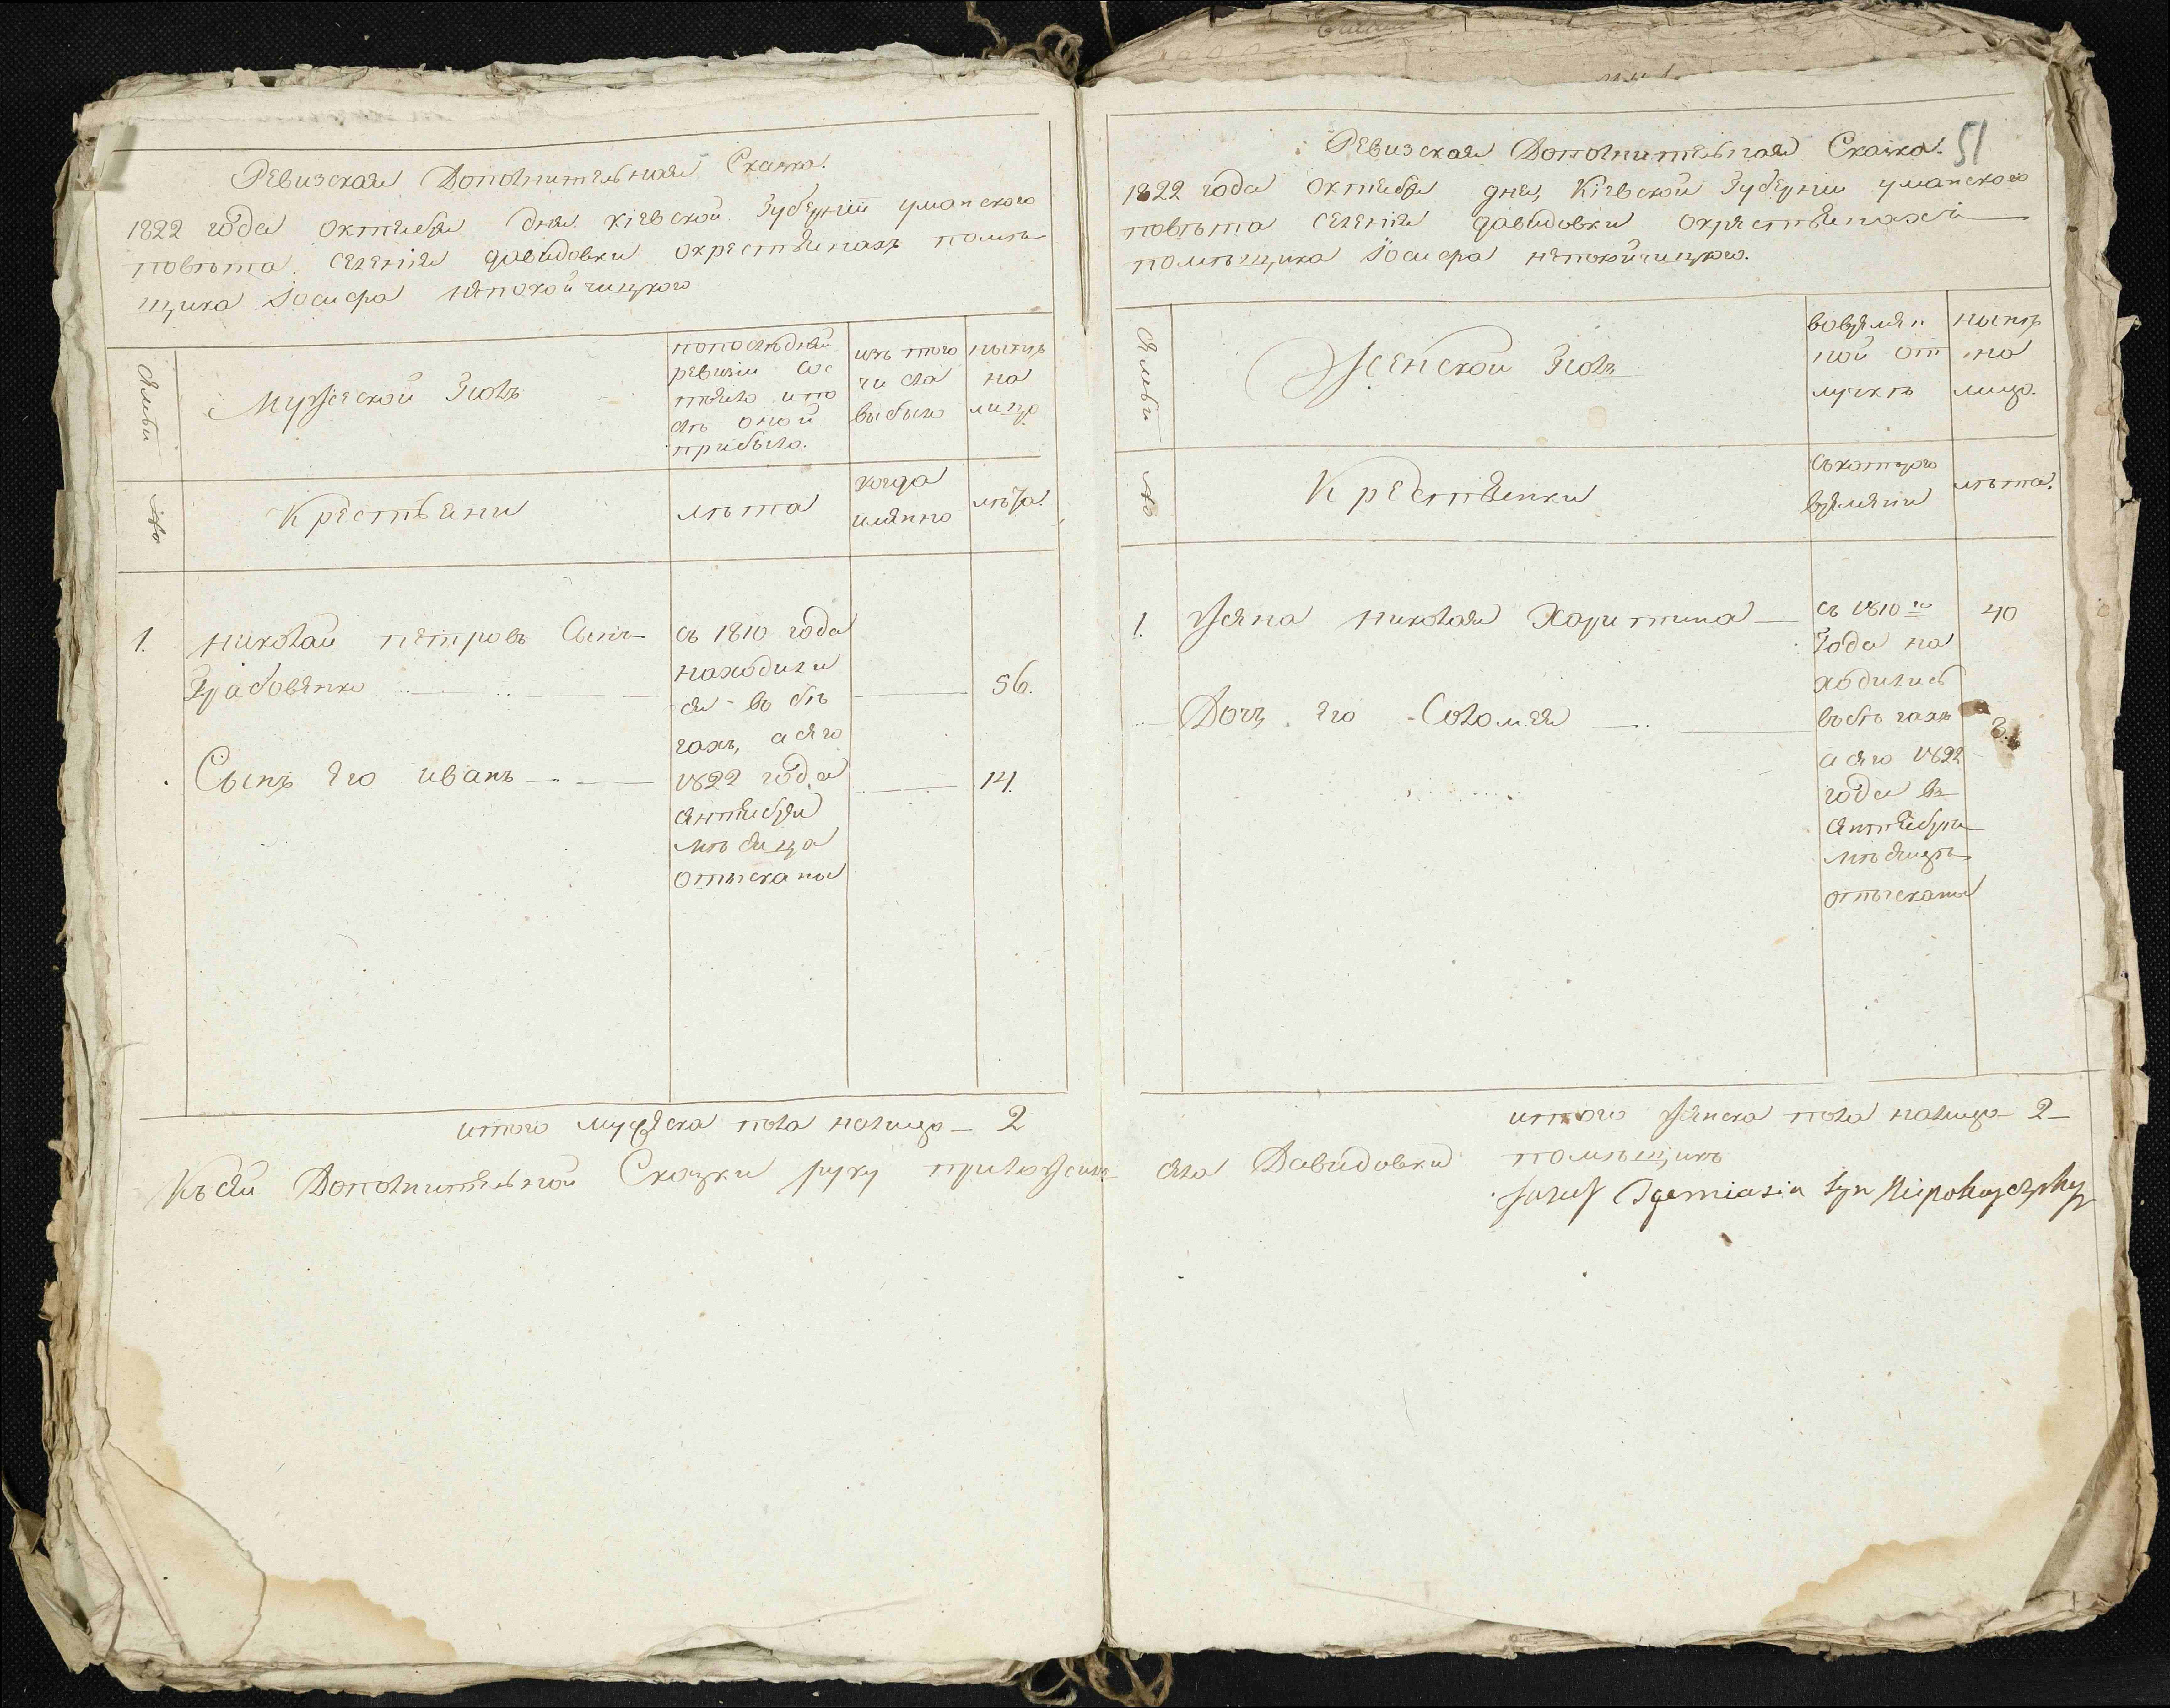 Ревизская Дополнительная Сказка.
1822 года октября дня кіевской губерніи уманского
повѣта селенія давидовки окрестьянахъ помѣ
щика Іосифа непокойчицкого
Семьи
Мужеской Полъ
попослѣдней
ревизіи сос
тояло ипо
слѣ оной
прибыло.
изъ того
числа
выбыло
нынѣ
на
лицо
№
Крестьяни
лѣта
когда
имянно
лѣта.
1. николай петровъ Сынъ
Грабовенко 56.
съ 1810 года
находили
ся въ бѣ
гахъ, а сего
1822 года
сентября
мѣсяца
отысканы
Сынъ его иванъ 14.
итого мужеска пола налицо 2
Къ сей Дополнительной Сказки руку приложилъ
Ревизская Дополнительная Сказка. 51
1822 года октября дня, Кіевской Губерніи уманского
повѣта селенія давидовки окрестьянахъ
помѣщика Іосифа непокойчицкого.
Семьи
Женской Полъ
вовремян
ной от
лучкѣ
нынѣ
на
лицо.
№
Крестьянки
съкоторого
времяни
лѣта.
1. жена николая Харитина 40
съ 1810го
Года на
ходились
въ бѣгахъ
а сего 1822
года въ
сентябрѣ
мѣсяцѣ
отысканы
Дочь его Соломея
итого женска пола налицо 2
села Давидовки помѣщикъ
Jozef Jeremiasza Syn Niepokoyczycky